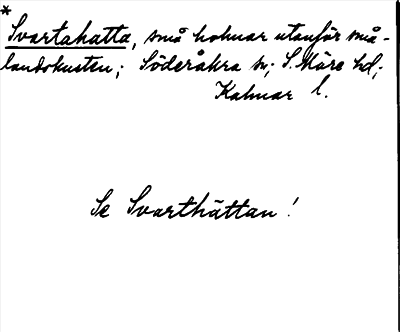 *
Svartahatta, små holmar utanför små-
landskusten; Söderåkra sn; S. Möre hd;
Kalmar l.
Se Svarthättan!